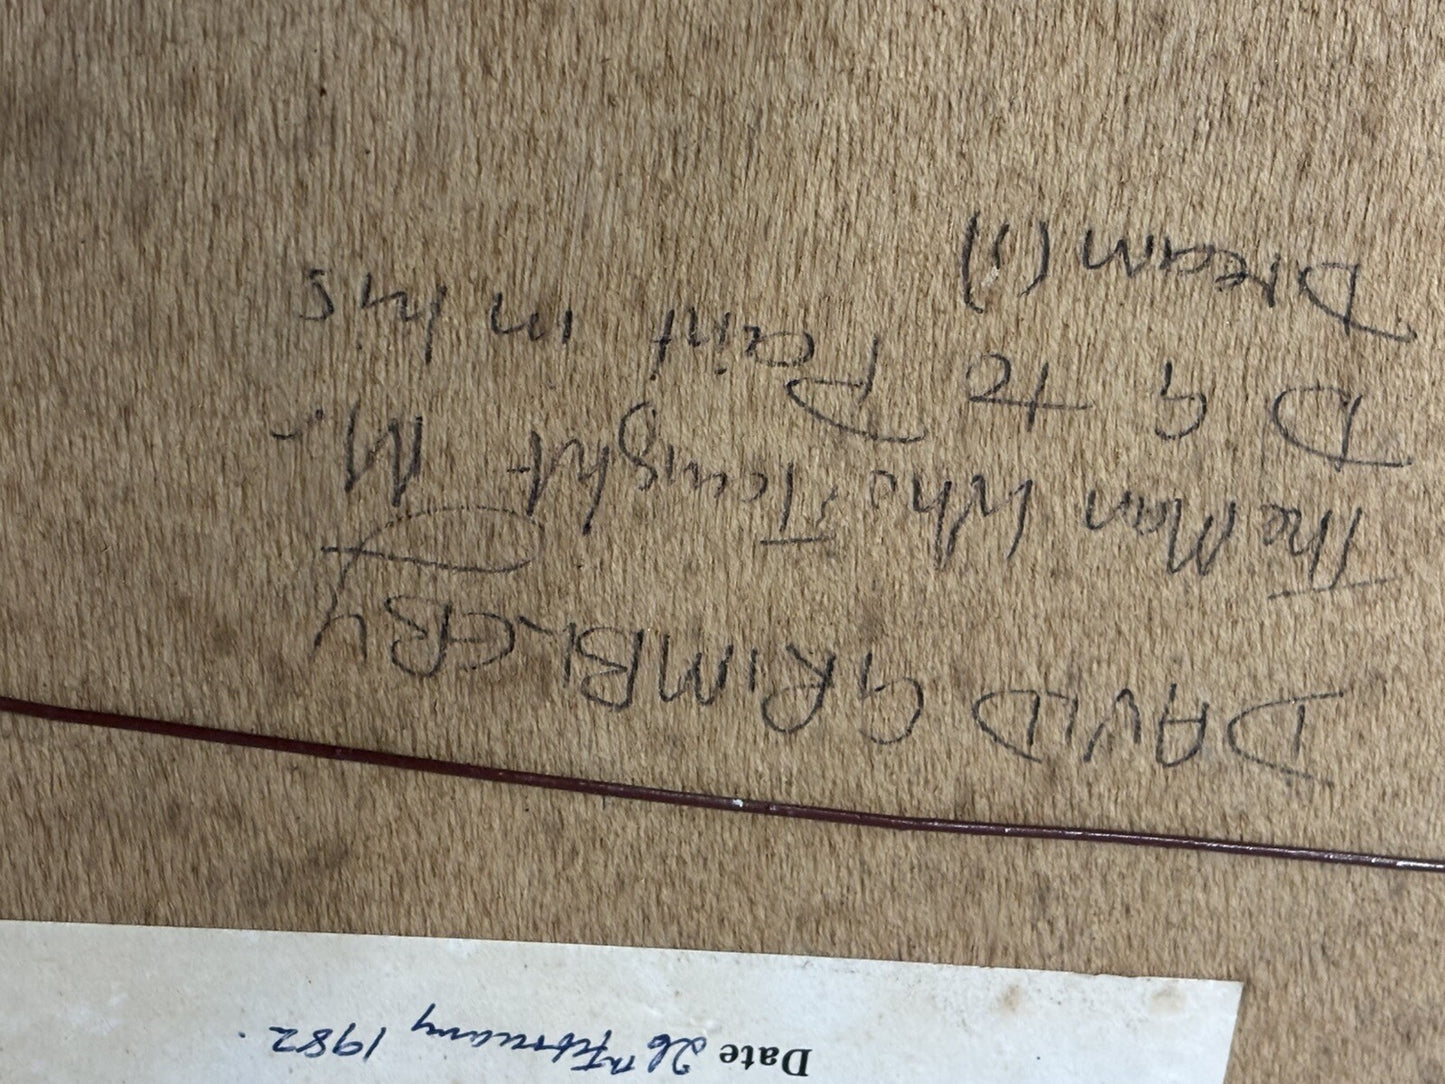 Date 26th February 1982.
DAVID GRIMBLEBY
The Man Who Taught Mr
D G to Paint in his
Dream (1)